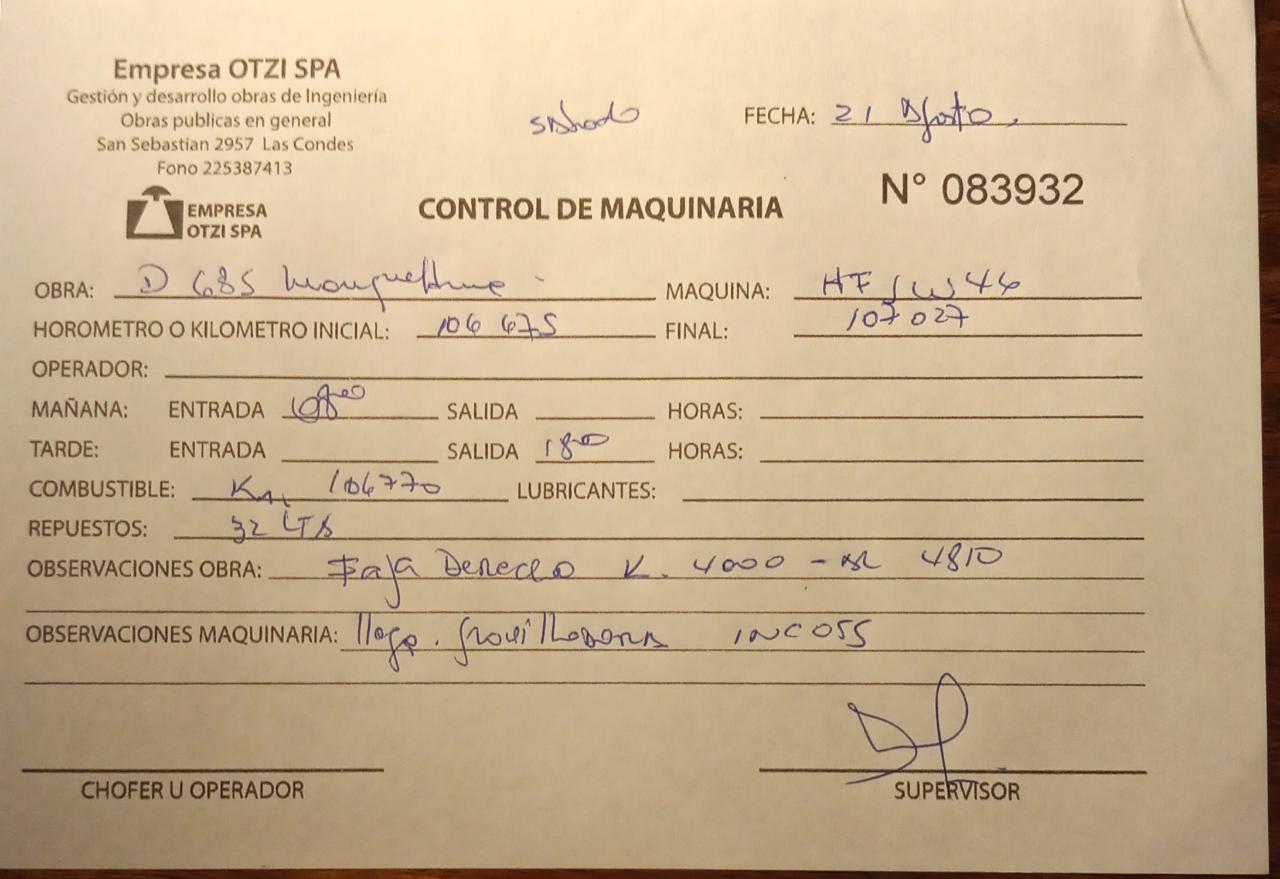 Empresa OTZI SPA
Gestión y desarrollo obras de Ingeniería
Obras publicas en general
San Sebastian 2957 Las Condes
Fono 225387413
EMPRESA
OTZI SPA
sabado
FECHA: 21 Agosto.
N° 083932
CONTROL DE MAQUINARIA
OBRA: D 685 MAQUINA: HF 46
HOROMETRO O KILOMETRO INICIAL: 106 675 FINAL: 107 027
OPERADOR:
MAÑANA: ENTRADA 08 00 SALIDA HORAS:
TARDE: ENTRADA SALIDA 18 00 HORAS:
COMBUSTIBLE: Km 106770 LUBRICANTES:
REPUESTOS: 32 LTS
OBSERVACIONES OBRA: Faja Derecho K. 4000 - AL 4810
OBSERVACIONES MAQUINARIA: INCOSS
CHOFER U OPERADOR
SUPERVISOR